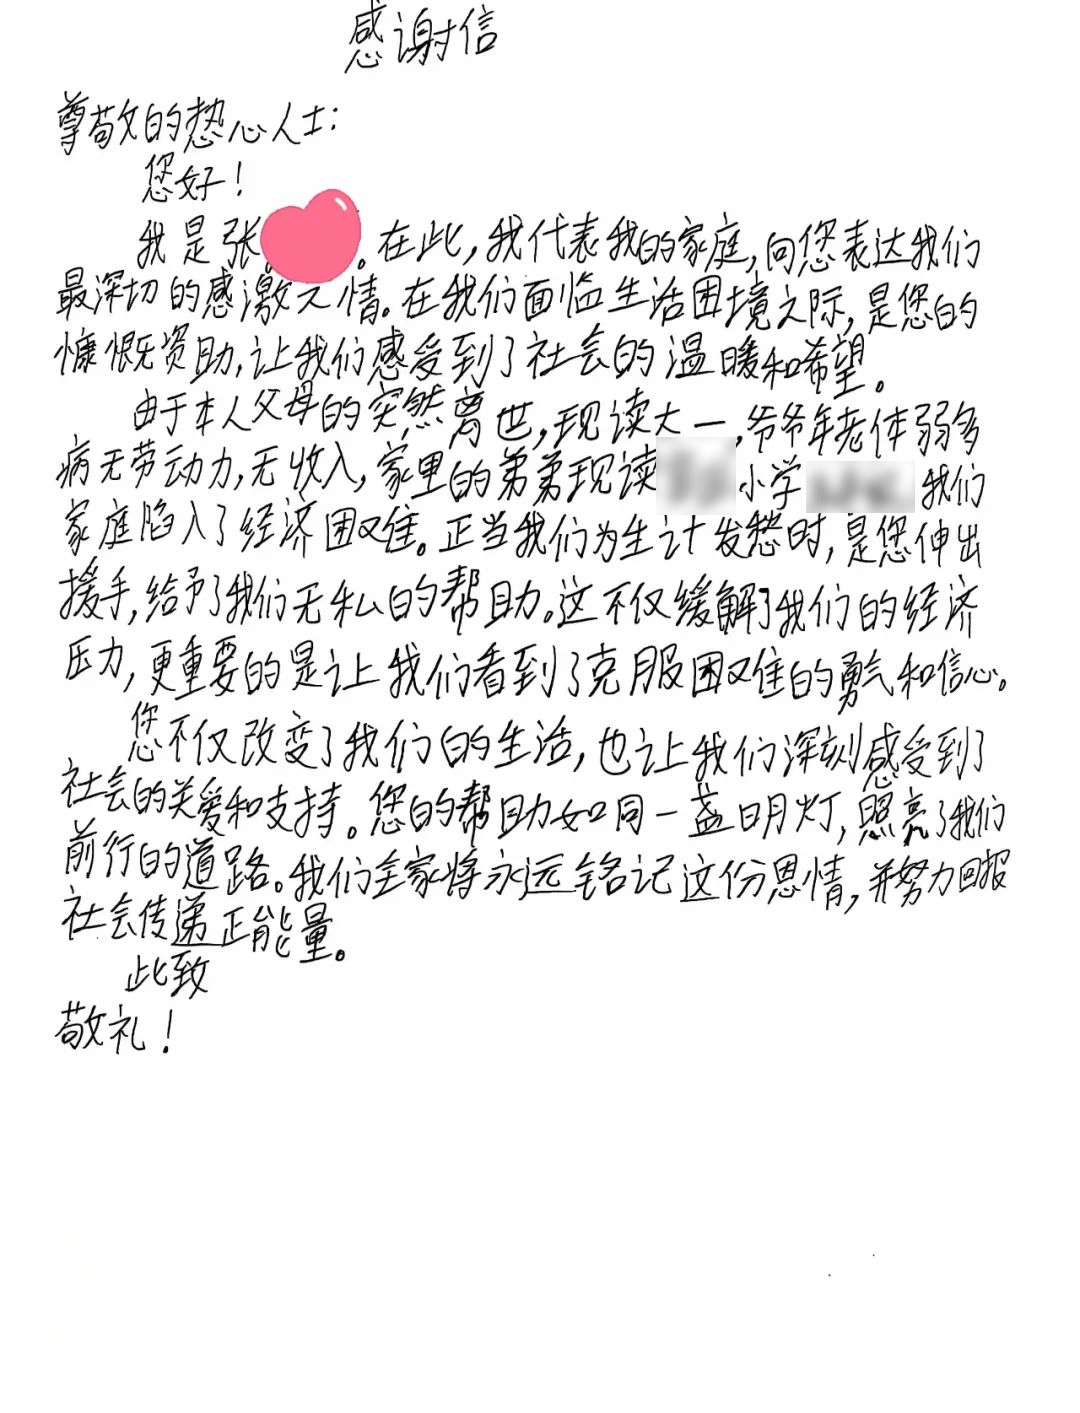 感谢信
尊敬的热心人士：
您好！
我是张。在此，我代表我的家庭，向您表达我们
最深切的感激之情。在我们面临生活困境之际，是您的
慷慨资助，让我们感受到了社会的温暖和希望。
由于本人父母的突然离世，现读大一，爷爷年老体弱多
病无劳动力，无收入，家里的弟弟现读小学我们
家庭陷入了经济困难。正当我们为生计发愁时，是您伸出
援手，给予了我们无私的帮助。这不仅缓解了我们的经济
压力，更重要的是让我们看到了克服困难的勇气和信心。
您不仅改变了我们的生活，也让我们深刻感受到了
社会的关爱和支持。您的帮助如同一盏明灯，照亮了我们
前行的道路。我们全家将永远铭记这份恩情，并努力回报
社会传递正能量。
此致
敬礼！